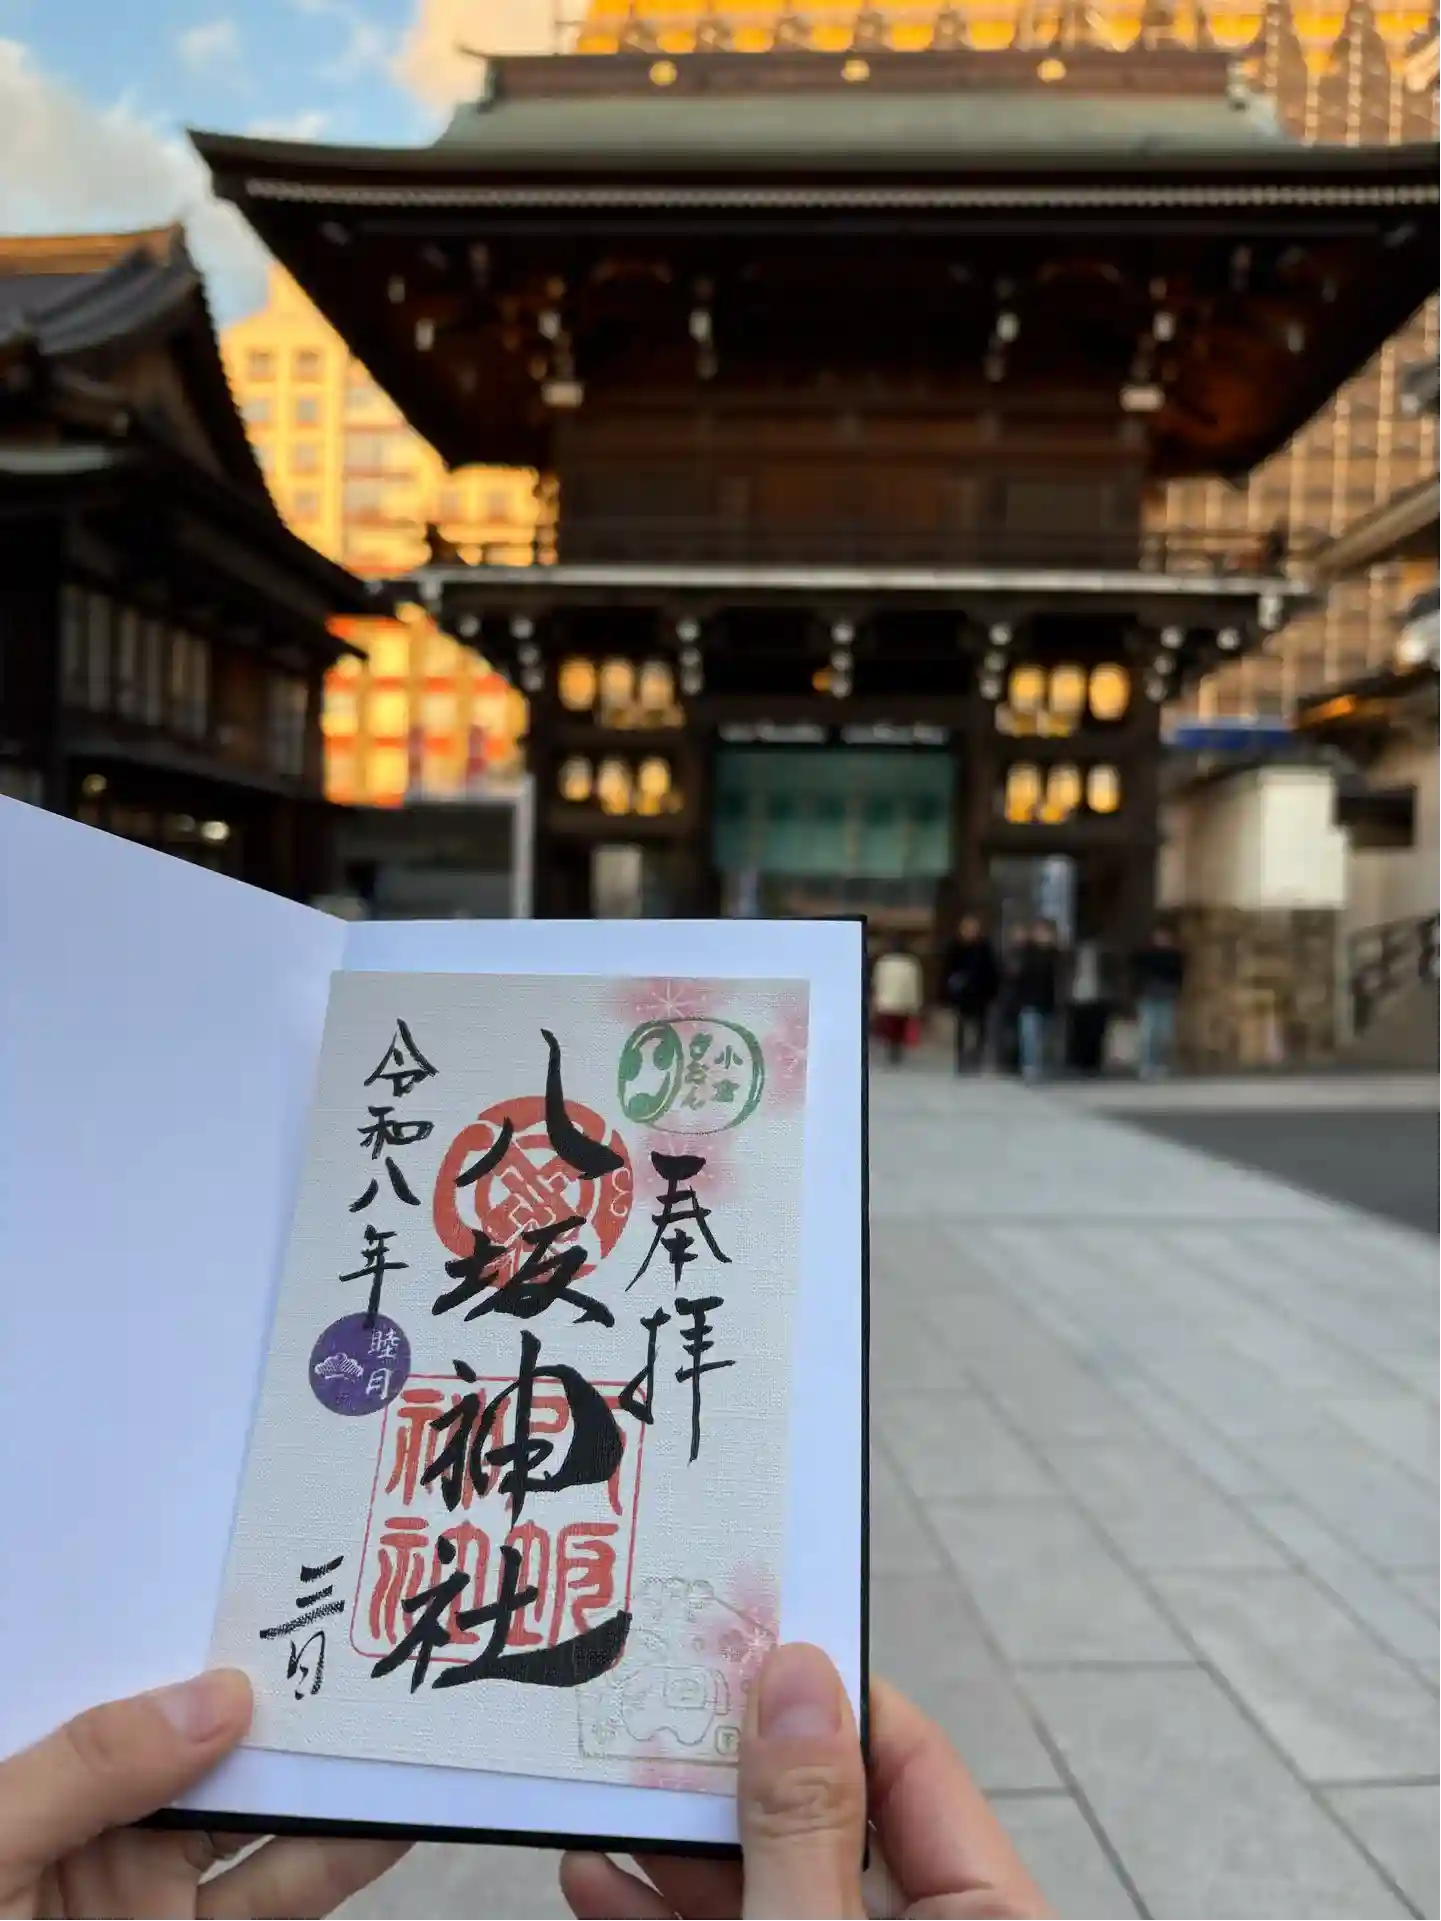 小倉
ぎおん
奉拝
八坂神社
八坂
神社
令和八年
睦月
三日